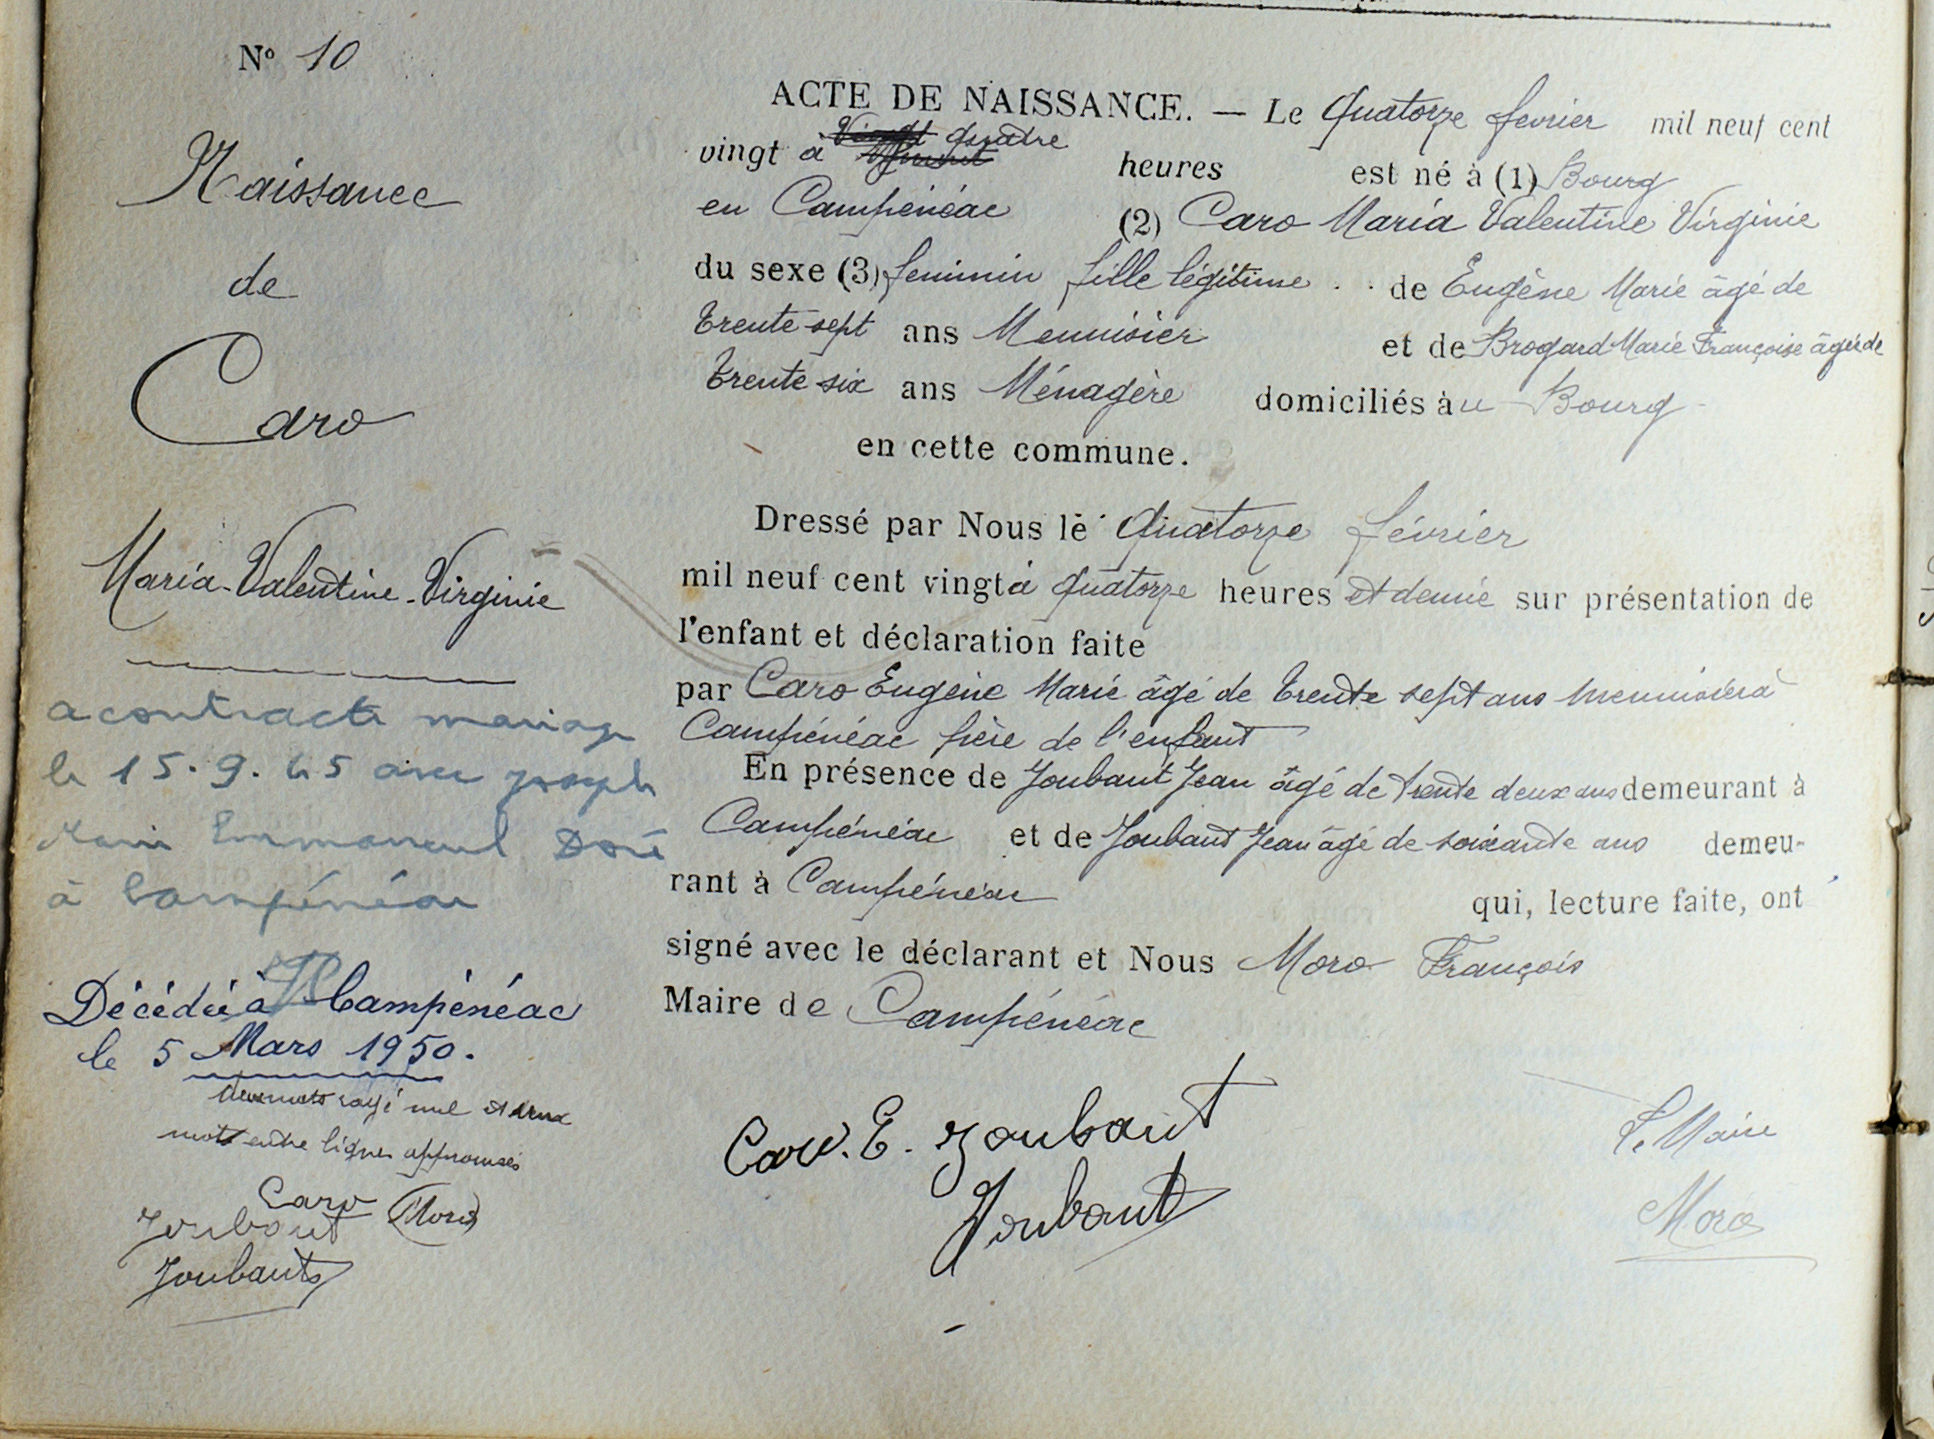 N° 10
Naissance
de
Caro
Maria-Valentine-Virginie
a contracté mariage
le 15.9.45 avec Joseph
Marie Emmanuel Doré
à Campénéac
Décédée à Campénéac
le 5 Mars 1950.
rayé nul et deux
mots entre lignes approuvés
Caro Moro
Joubaut
Joubaut
ACTE DE NAISSANCE. — Le Quatorze fevrier mil neuf cent
vingt à quatre heures est né à (1) Bourg
en Campénéac (2) Caro Maria Valentine Virginie
du sexe (3) feminin fille légitime de Eugène Marie âgé de
trente sept ans Menuisier et de Brogard Marie Françoise âgée de
trente six ans Ménagère domiciliés àu Bourg
en cette commune.
Dressé par Nous le Quatorze février
mil neuf cent vingt à quatorze heures et demie sur présentation de
l'enfant et déclaration faite
par Caro Eugène Marie âgé de trente sept ans menuisier à
Campénéac père de l'enfant
En présence de Joubaut Jean âgé de trente deux ans demeurant à
Campénéac et de Joubaut Jean âgé de soixante ans demeu-
rant à Campénéac qui, lecture faite, ont
signé avec le déclarant et Nous Moro François
Maire de Campénéac
Caro. E. Joubaut
Joubaut
Le Maire
Moro